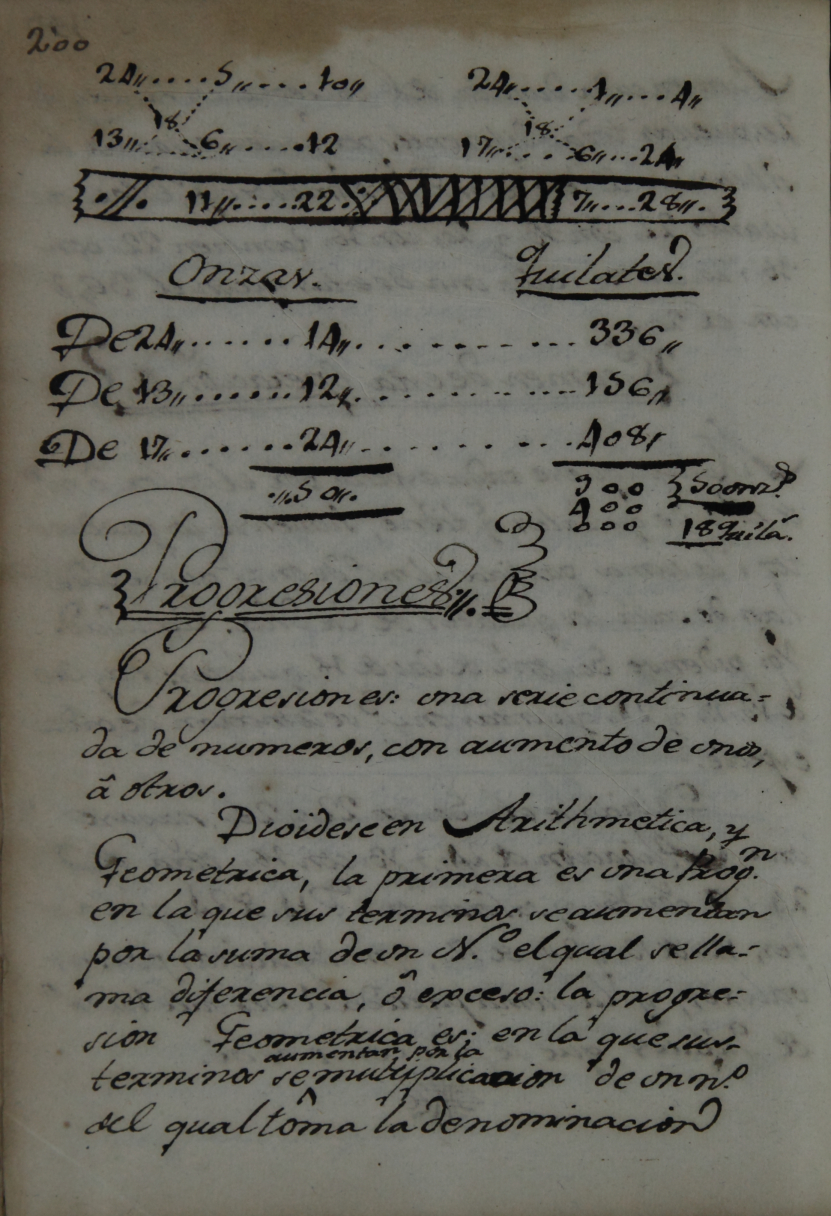 200
24,,.....5,,....10,, 24,,.....1,,....4,,
18 18
13,,.....6,,.....12 17,,.....6,,...24,,
.//. 11,,....22. 7,,...28,,.
Onzas. Quilates.
De 24,,......14,,...........336,,
De 13,,......12,,...........156,,
De 17,,......24,,...........408,,
.,,50,,. 900 } 50 onz.s
400
000 18 Quila.s
Progresiones,,.
Progresion es: una serie continua=
da de numeros, con aumento de unos,
â otros.
Dividese en Arithmetica, y
Geometrica, la primera es una Prog.n
en la que sus terminos se aumentan
por la suma de un N.o el qual se lla=
ma diferencia, ô exceso: la progre=
sion Geometrica es: en la que sus
aumentan, por la
terminos se multiplicacion de un n.o
del qual tôma la denominacion